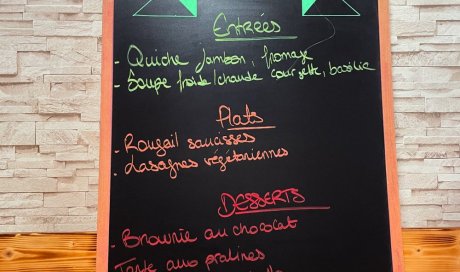 Entrées
- Quiche Jambon, fromage
- Soupe froide/chaude courgette, basilic
Plats
- Rougail saucisses
- Lasagnes végétariennes
Desserts
- Brownie au chocolat
Tarte aux pralines